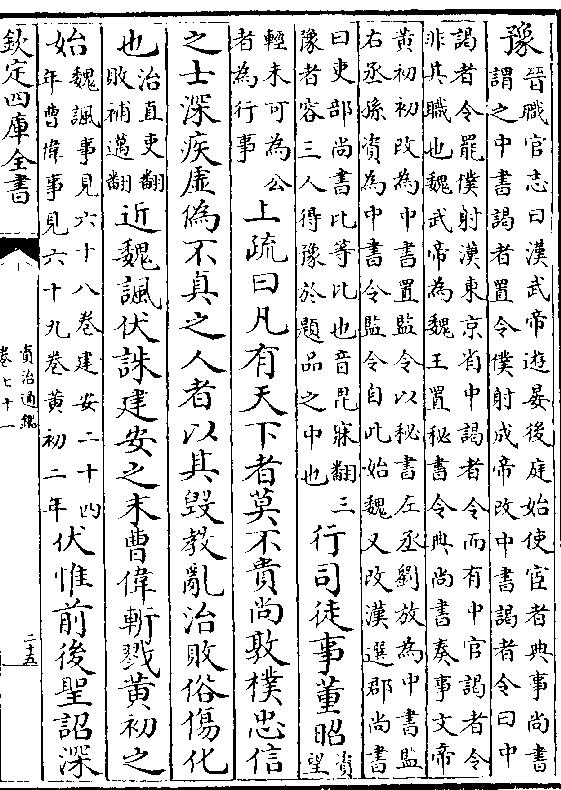 豫晉職官志曰漢武帝遊宴後庭始使宦者典事尚書
謂之中書謁者置令僕射成帝改中書謁者令曰中
謁者令罷僕射漢東京省中謁者令而有中官謁者令
非其職也魏武帝為魏王置秘書令典尚書奏事文帝
黃初初改為中書置監令以秘書左丞劉放為中書監
右丞孫資為中書令監令自此始魏又改漢選部尚書
曰吏部尚書比等比也音毘寐翻三
豫者容三人得豫於題品之中也
行司徒事董昭
資望
輕未可為公
者為行事
上疏曰凡有天下者莫不貴尚敦樸忠信
之士深疾虛偽不真之人者以其毀教亂治敗俗傷化
也
治直吏翻
敗補邁翻
近魏諷伏誅建安之末曹偉斬戮黃初之
始
魏諷事見六十八卷建安二十四
年曹偉事見六十九卷黃初二年
伏惟前後聖詔深
欽定四庫全書
資治通鑑
卷七十一
二十五